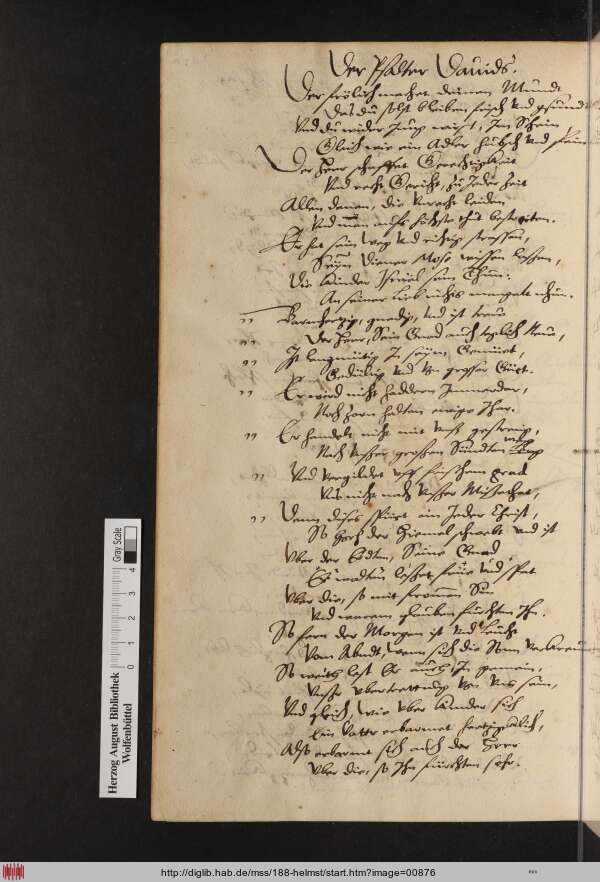 Der Psalter Dauids.
Der frölich machet deinen Mundt
Das du solst bleiben frisch vnd gesund
Vnd du wider Jung wirst, Im Schein
Gleich wie ein Adler hübsch vnd fein
Der Herr schaffet Gerechtigkeit
Vnd recht Gericht, zu Jeder Zeit
Allen denen, die Vnrecht leiden
Vnd man auffs höchste thut bestreiten.
Er hat sein Weg vnd richtig strassen,
Seim Diener Mose wissen lassen,
Die Kinder Israel sein Thun:
An seiner Lieb nichts mangeln thun.
" Barmhertzig, gnedig, vnd ist trew
" Der Herr, Sein Gnad auch teglich New,
" Ist langmütig In seim Gemüet,
Gedültig vnd von grosser Güet.
" Er wird nicht haddern Jmmerdar,
Noch Zorn halten ewige Jhar.
" Er handelt nicht mit vnß gestreng,
Nach vnser grossen Sündten Meng
" Vnd vergildet vff frischem grad
Vns nicht nach vnser Missethat,
" Dann dises spüert ein Jeder Christ,
So hoch der Himmel schwebt vnd ist
Vber der Erdten, Seine Gnad
Er walten lesset früe vnd spat
Vber die, so mit frommen Sin
Vnd warem glauben fürchten Ihn.
So fern der Morgen ist vnd leücht
Vom Abendt, wann sich die Sonn
So weitt lest Er auch, In gemein,
Vnsre vbertrettung von vns sein,
Vnd gleich, wie vber Kinder sich
Ein Vatter erbarmet hertziglich,
Also erbarmt sich auch der Herr
Vber die, so Ihn fürchten sehr.
Herzog August Bibliothek
Wolfenbüttel
0 1 2 3 4
Gray Scale
http://diglib.hab.de/mss/188-helmst/start.htm?image=00876